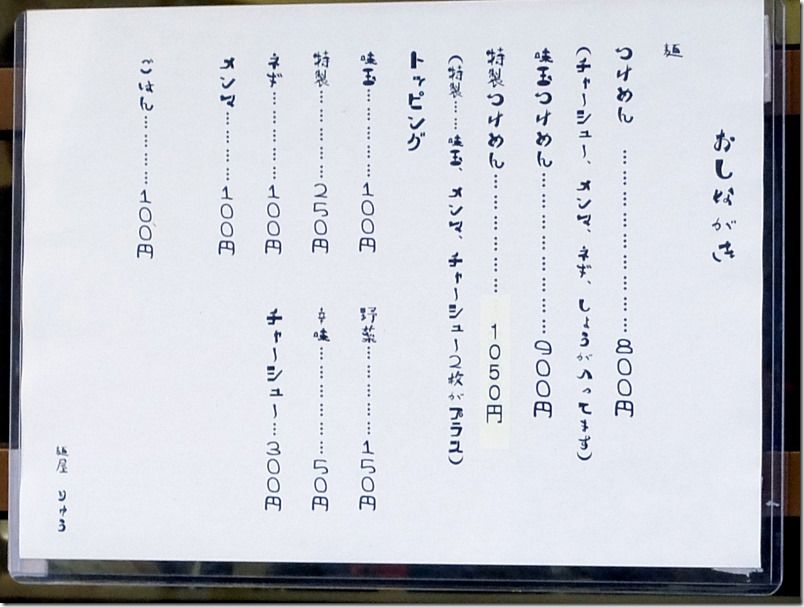 おしながき
麺
つけめん …………………… 800円
(チャーシュー、メンマ、ネギ、しょうが入ってます)
味玉つけめん……………………900円
特製つけめん………………1050円
(特製……味玉、メンマ、チャーシュー2枚がプラス)
トッピング
味玉……………100円
野菜……………150円
特製……………250円
辛味……………50円
ネギ……………100円
チャーシュー…300円
メンマ…………100円
ごはん…………100円
麺屋 りゅう